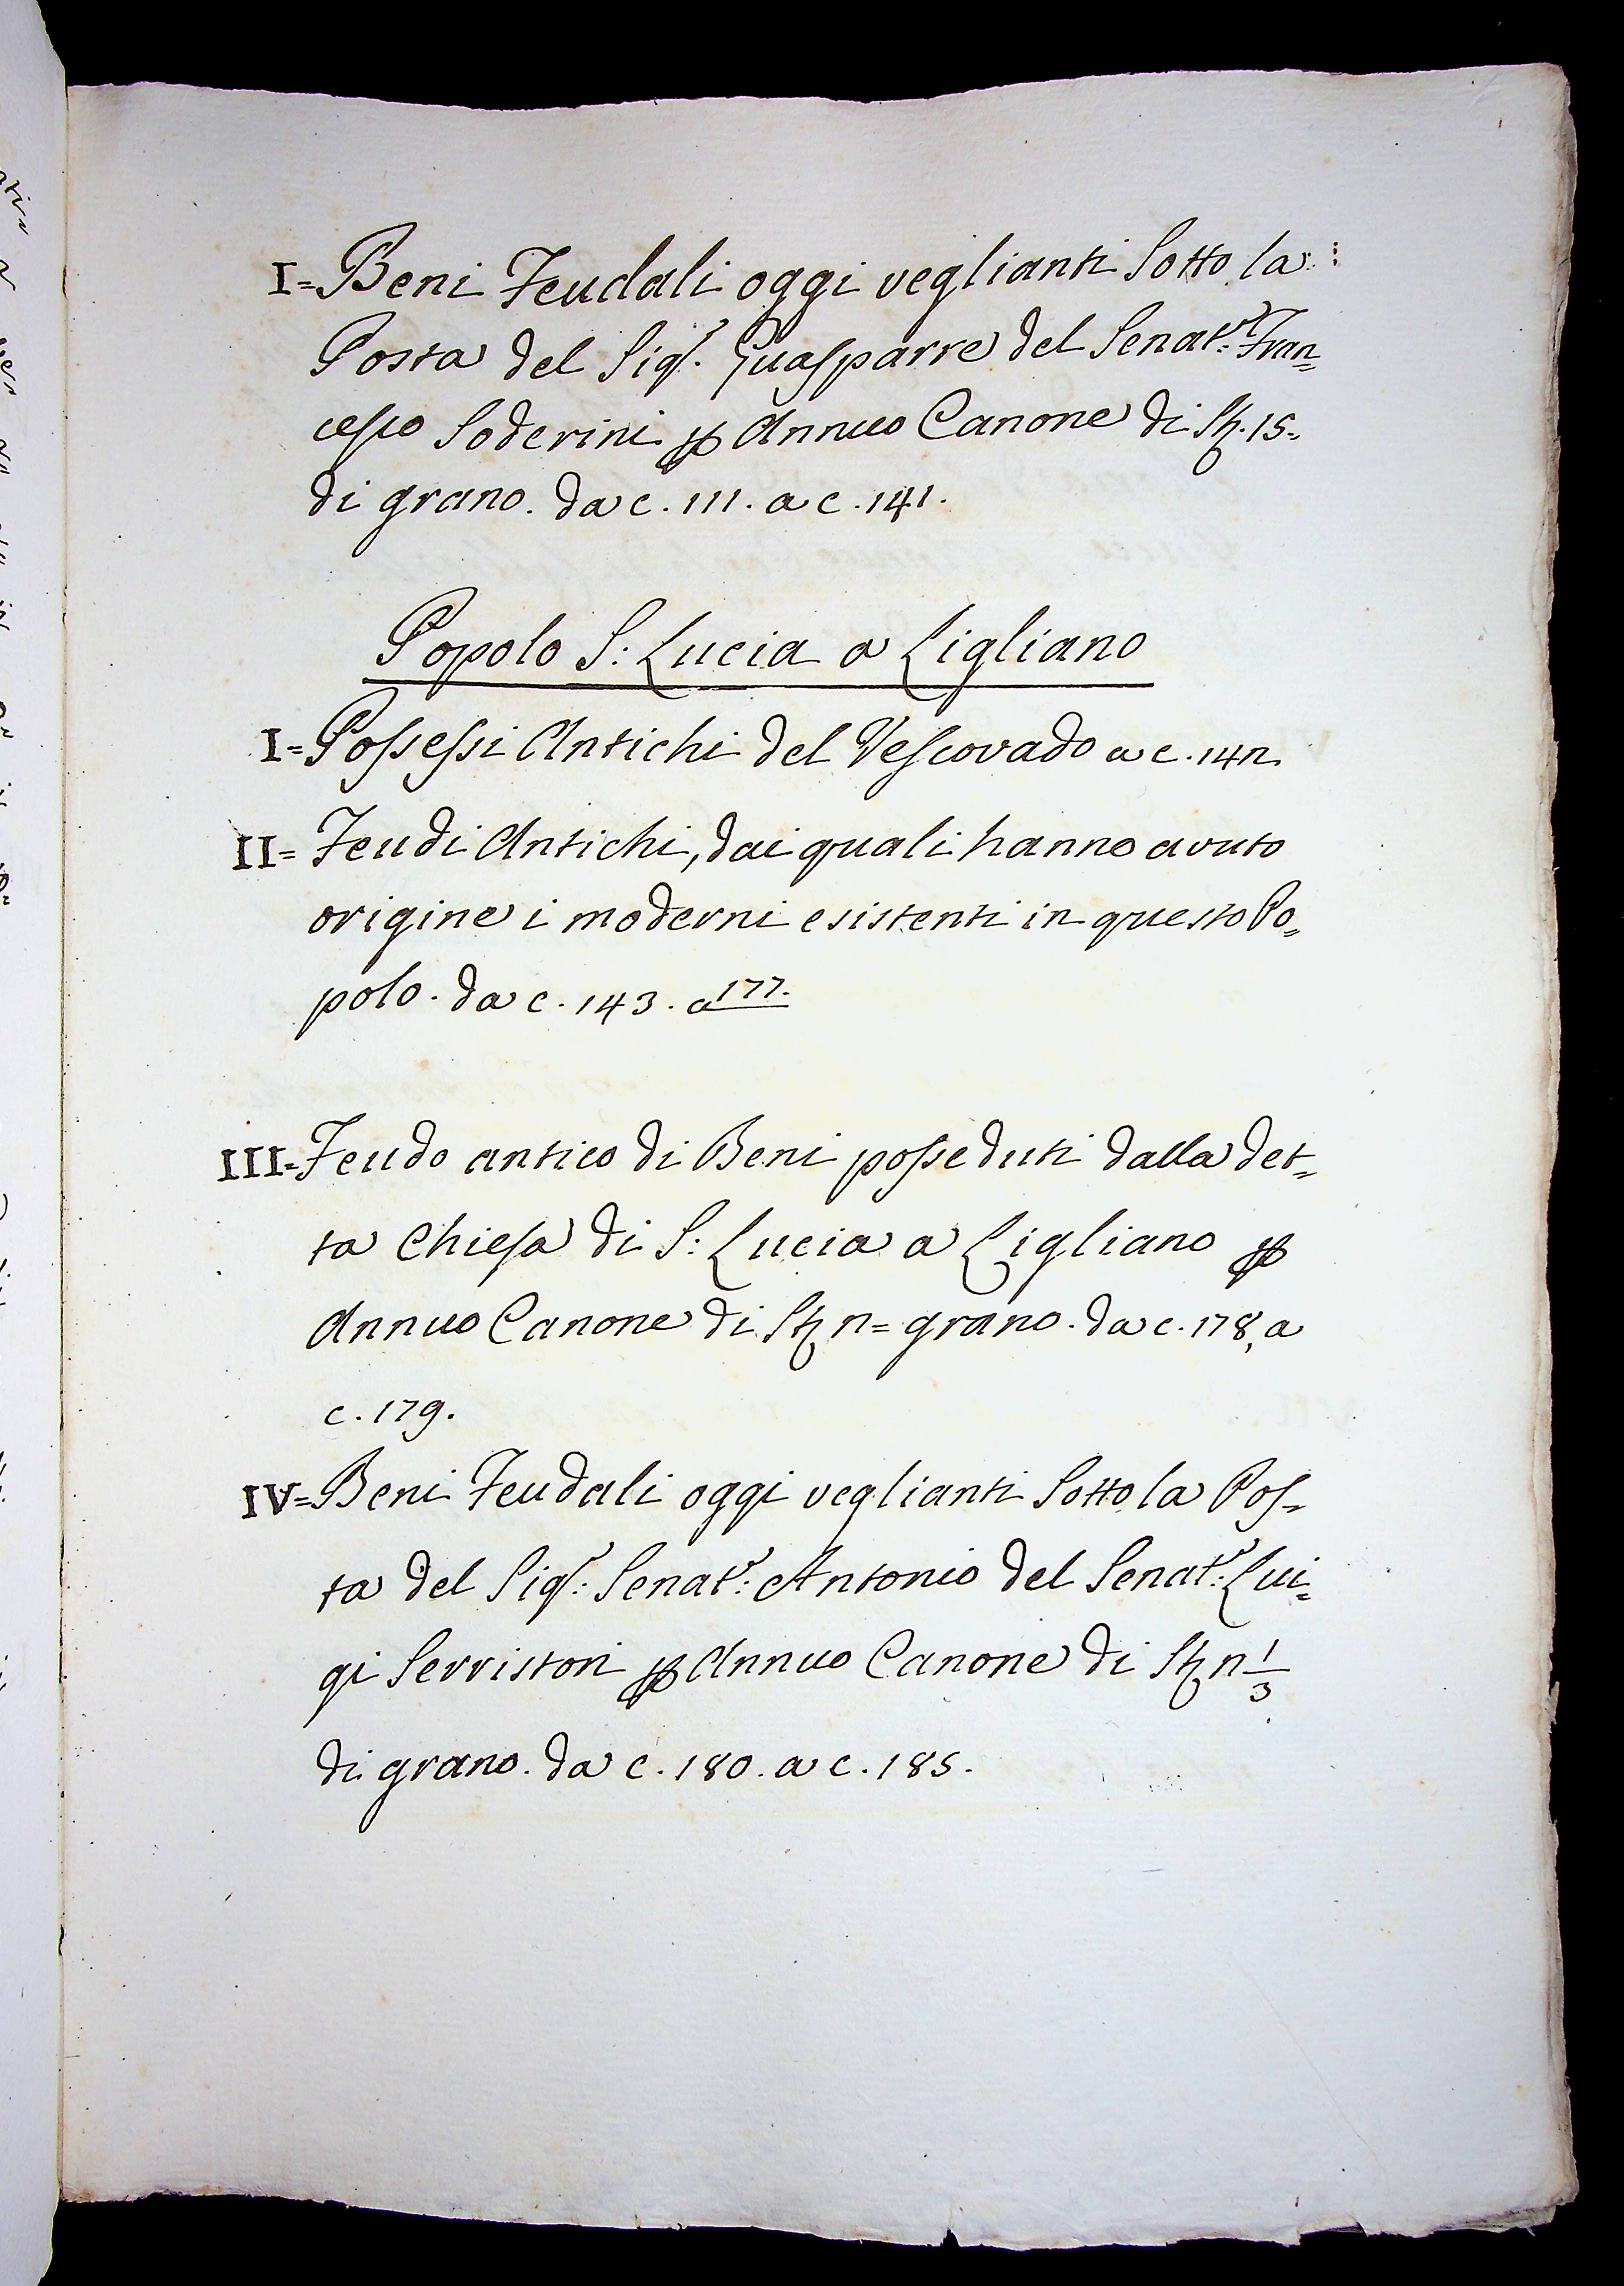 I= Beni Feudali oggi veglianti Sotto la:
Posta del Sig.r Guasparre del Senat.r Fran=
cesco Soderini p Annuo Canone di St. 15=
di grano. da c. 111. a c. 141.
Popolo S: Lucia a Ligliano
I= Possessi Antichi del Vescovado a c. 142.
II= Feudi Antichi, dai quali hanno avuto
origine i moderni esistenti in questo Po=
polo. da c. 143. a 177.
III= Feudo antico di Beni posseduti dalla det=
ta Chiesa di S: Lucia a Ligliano p
Annuo Canone di St 2= grano. da c. 178, a
c. 179.
IV= Beni Feudali oggi veglianti Sotto la Pos=
ta del Sig.r: Senat.r: Antonio del Senat.r: Lui=
gi Serristori p Annuo Canone di St 2 1/3
di grano. da c. 180. a c. 185.